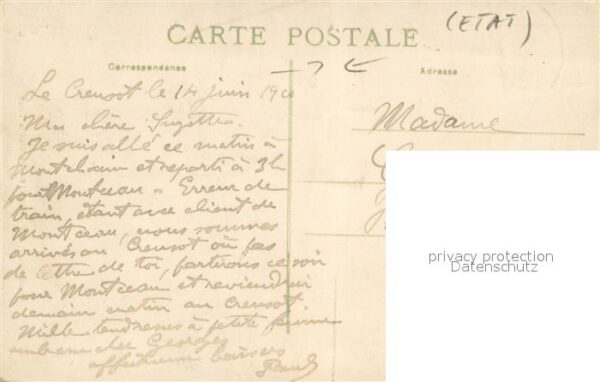 (ETAT)
CARTE POSTALE
Correspondance
Adresse
Le Creusot le 14 juin 19
Ma chère Suzette
Je suis allé ce matin à
Montchanin et reparti à 3h
pour Montceau Erreur de
train, étant avec client de
Montceau, nous sommes
arrivés au Creusot où pas
de lettre de toi, partirons ce soir
pour Montceau et reviendrai
demain matin au Creusot
Mille tendresses à petite
Georges
affectueux baisers
Madame
privacy protection
Datenschutz